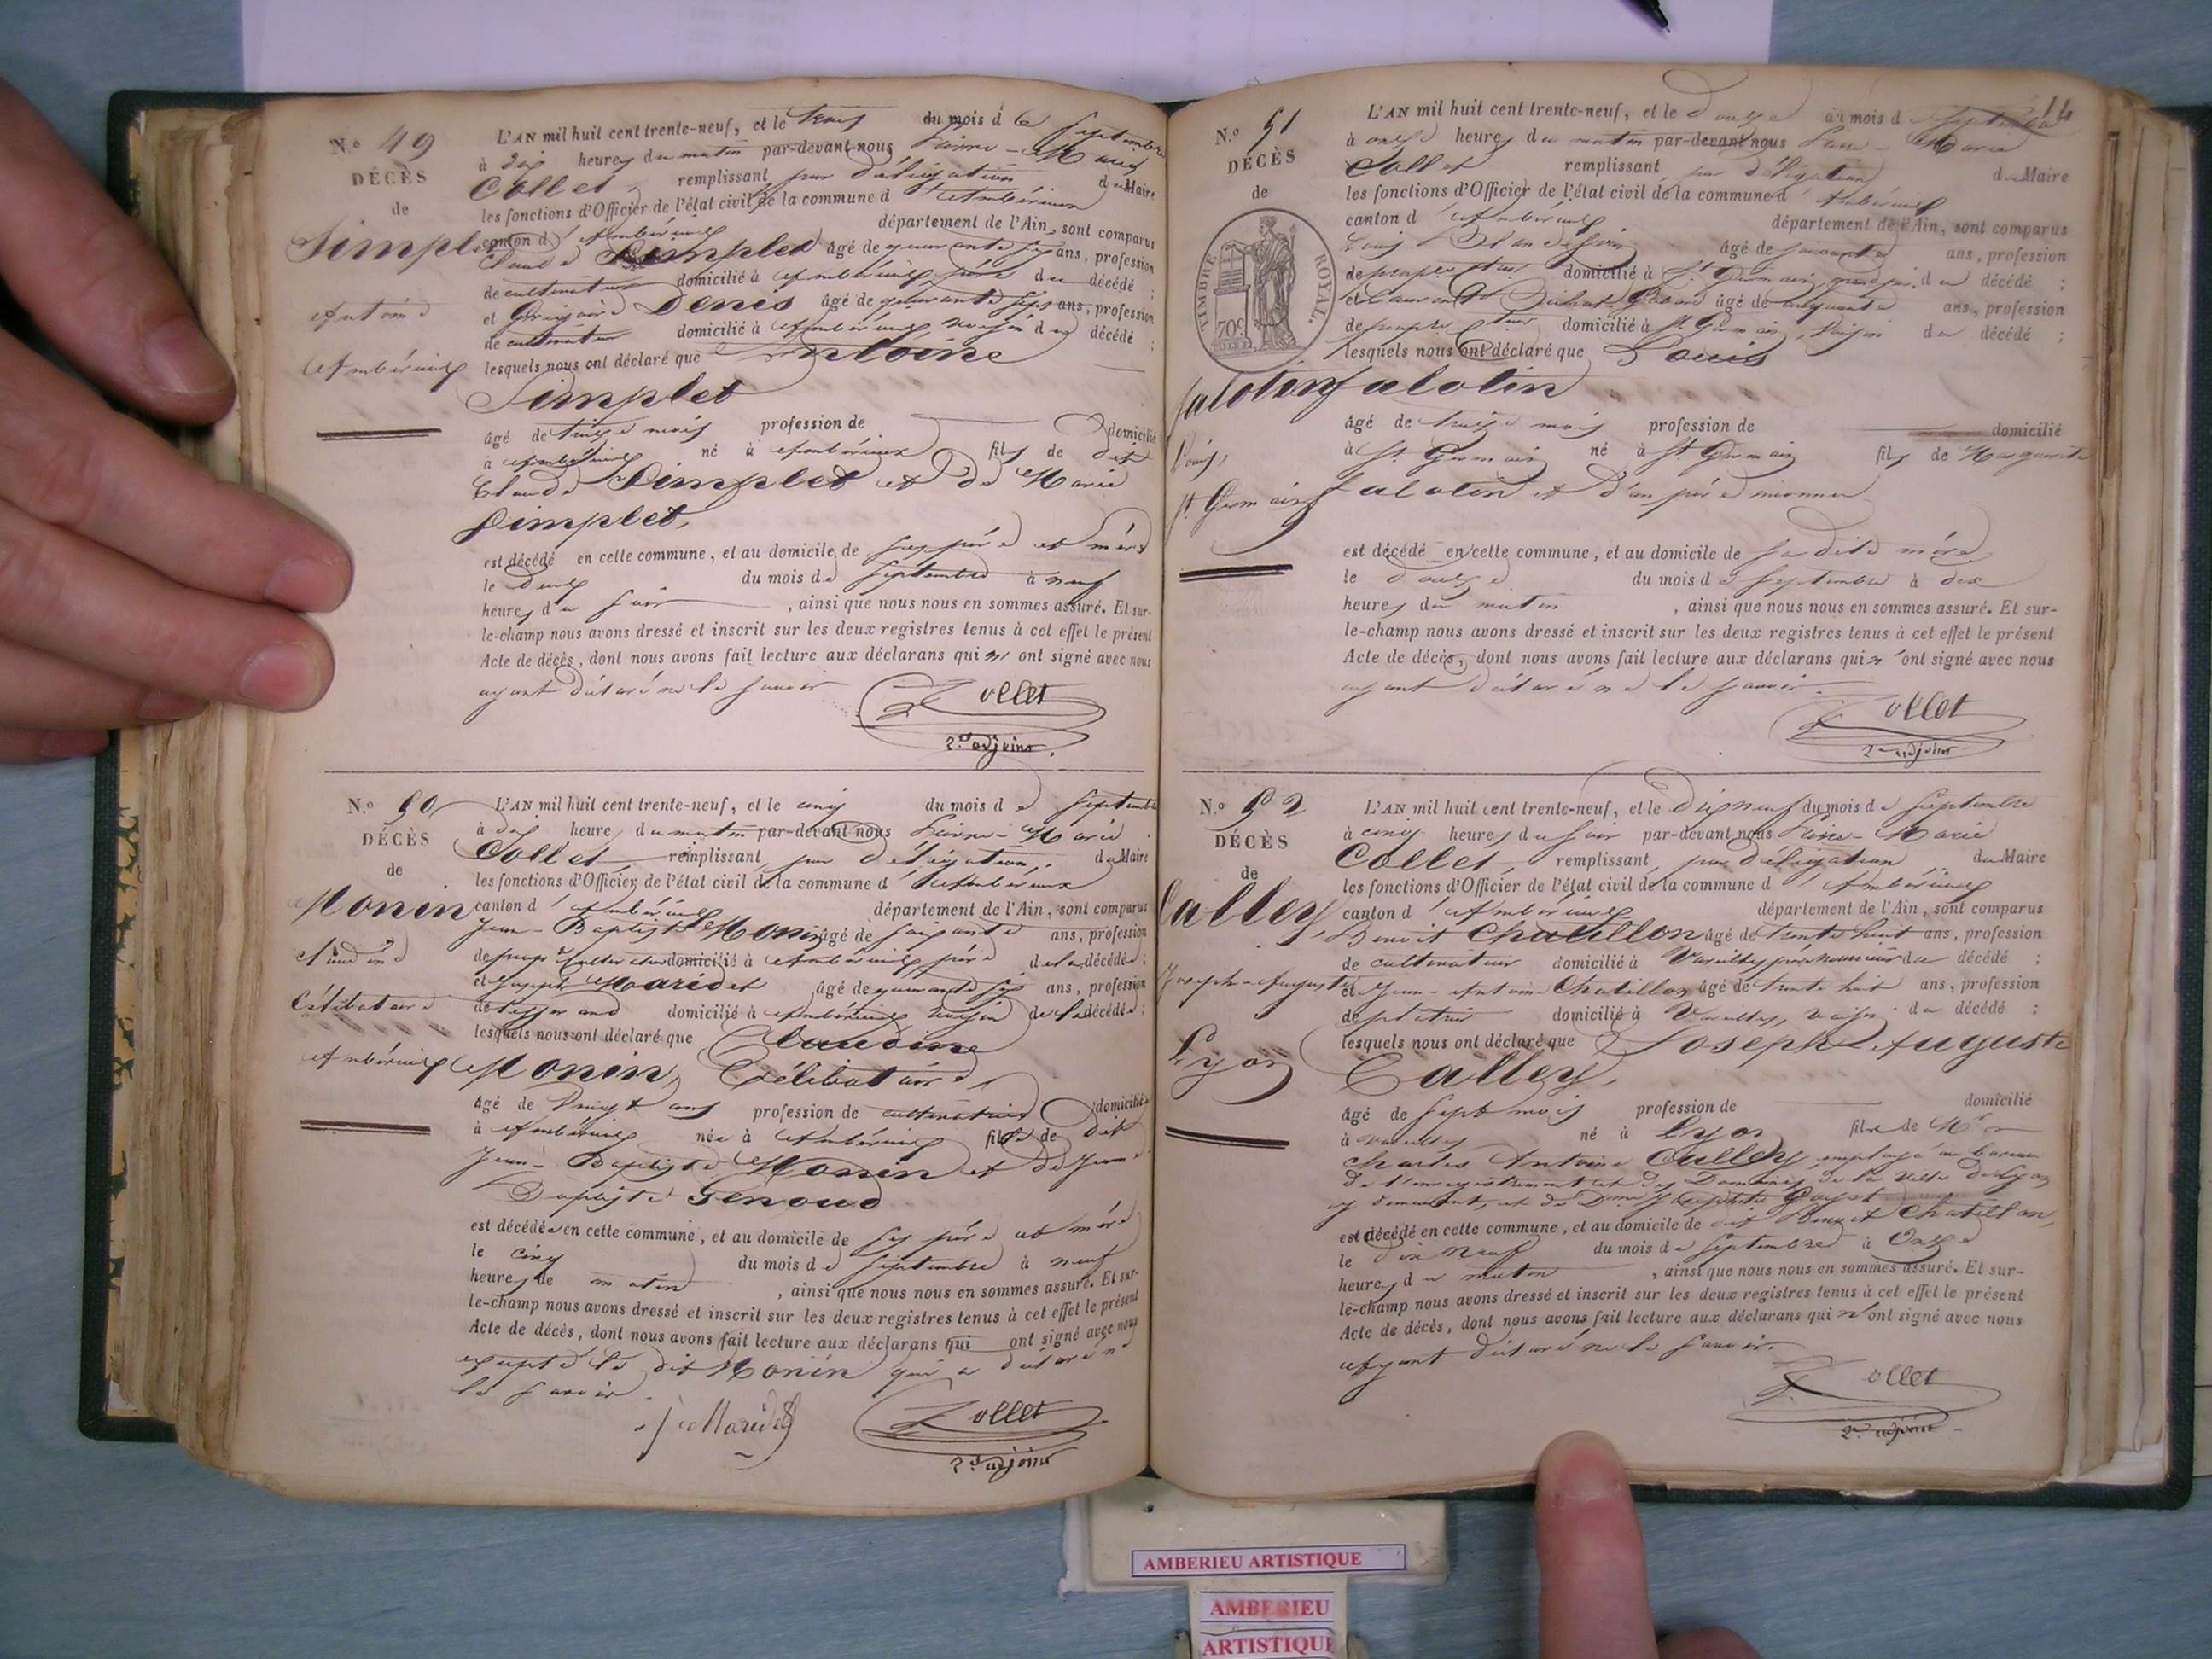 N.o 49
DÉCÈS
de
Simplet
Antoine
Ambérieux
L'AN mil huit cent trente-neuf, et le trois du mois de Septembre
à dix heures du matin par-devant nous Pierre-Marie
Collet, remplissant par délégation du Maire
les fonctions d'Officier de l'état civil de la commune d'Ambérieux
canton d'Ambérieux département de l'Ain, sont comparus
Claude Simplet âgé de quarante six ans, profession
de cultivateur domicilié à Ambérieux, père du décédé ;
et Grégoire Denis âgé de quarante sept ans, profession
de cultivateur domicilié à Ambérieux, voisin du décédé ;
lesquels nous ont déclaré que Antoine
Simplet
âgé de treize mois profession de domicilié
à Ambérieux né à Ambérieux fils de dit
Claude Simplet et de Marie
Simplet,
est décédé en cette commune, et au domicile de ses père et mère
le deux du mois de Septembre à neuf
heures du soir, ainsi que nous nous en sommes assuré. Et sur-
le-champ nous avons dressé et inscrit sur les deux registres tenus à cet effet le présent
Acte de décès, dont nous avons fait lecture aux déclarans qui n'ont signé avec nous
ayant déclaré ne le savoir
Collet
2.d adjoint
N.o 50
DÉCÈS
de
Monin
Claudine
Célibataire
Ambérieux
L'AN mil huit cent trente-neuf, et le cinq du mois de Septembre
à dix heures du matin par-devant nous Pierre-Marie
Collet, remplissant par délégation, du Maire
les fonctions d'Officier de l'état civil de la commune d'Ambérieux
canton d'Ambérieux département de l'Ain, sont comparus
Jean-Baptiste Monin âgé de soixante ans, profession
de cultivateur domicilié à Ambérieux père de la décédée ;
et Joseph Maridet âgé de quarante six ans, profession
de tisserand domicilié à Ambérieux voisin de la décédée ;
lesquels nous ont déclaré que Claudine
Monin, Célibataire,
âgé de vingt ans profession de cultivatrice domiciliée
à Ambérieux née à Ambérieux fille de dit
Jean-Baptiste Monin et de Jeanne
Baptiste Genoud
est décédée en cette commune, et au domicile de ses père et mère
le cinq du mois de Septembre à neuf
heures de matin, ainsi que nous nous en sommes assuré. Et sur-
le-champ nous avons dressé et inscrit sur les deux registres tenus à cet effet le présent
Acte de décès, dont nous avons fait lecture aux déclarans qui ont signé avec nous
excepté le dit Monin qui a déclaré ne
le savoir.
J Maridet
Collet
2.d adjoint
14
N.o 51
DÉCÈS
de
TIMBRE ROYAL.
70c
Jalotin
Louis,
St Germain
L'AN mil huit cent trente-neuf, et le douze du mois de Septembre
à onze heures du matin par-devant nous Pierre-Marie
Collet remplissant par délégation du Maire
les fonctions d'Officier de l'état civil de la commune d'Ambérieux
canton d'Ambérieux département de l'Ain, sont comparus
Louis âgé de soixante ans, profession
de domicilié à St Germain, grand père du décédé ;
et Laurent âgé de cinquante ans, profession
de domicilié à St Germain, voisin du décédé ;
lesquels nous ont déclaré que Louis
Jalotin
âgé de treize mois profession de domicilié
à St Germain né à St Germain fils de Marguerite
Jalotin et d'un père inconnu
est décédé en cette commune, et au domicile de sa dite mère
le douze du mois de Septembre à dix
heures du matin, ainsi que nous nous en sommes assuré. Et sur-
le-champ nous avons dressé et inscrit sur les deux registres tenus à cet effet le présent
Acte de décès, dont nous avons fait lecture aux déclarans qui n'ont signé avec nous
ayant déclaré ne le savoir.
Collet
2.d adjoint
N.o 52
DÉCÈS
de
Calley,
Joseph-Auguste
Lyon
L'AN mil huit cent trente-neuf, et le dix neuf du mois de Septembre
à cinq heures du soir par-devant nous Pierre-Marie
Collet, remplissant par délégation du Maire
les fonctions d'Officier de l'état civil de la commune d'Ambérieux
canton d'Ambérieux département de l'Ain, sont comparus
Benoit Chatillon âgé de trente huit ans, profession
de cultivateur domicilié à Vareilles, père nourricier du décédé ;
et Jean-Antoine Chatillon âgé de trente huit ans, profession
de plâtrier domicilié à Vareilles, voisin du décédé ;
lesquels nous ont déclaré que Joseph Auguste
Calley,
âgé de sept mois profession de domicilié
à Vareilles né à Lyon fils de Mr
Charles Antoine Calley, employé au bureau
de l'enregistrement et des Domaines de la ville de Lyon
y demeurant, et de Dme Josephte
est décédé en cette commune, et au domicile de dit Benoit Chatillon,
le dix neuf du mois de Septembre à Onze
heures du matin, ainsi que nous nous en sommes assuré. Et sur-
le-champ nous avons dressé et inscrit sur les deux registres tenus à cet effet le présent
Acte de décès, dont nous avons fait lecture aux déclarans qui n'ont signé avec nous
ayant déclaré ne le savoir.
Collet
2.d adjoint
AMBERIEU ARTISTIQUE
AMBERIEU
ARTISTIQUE